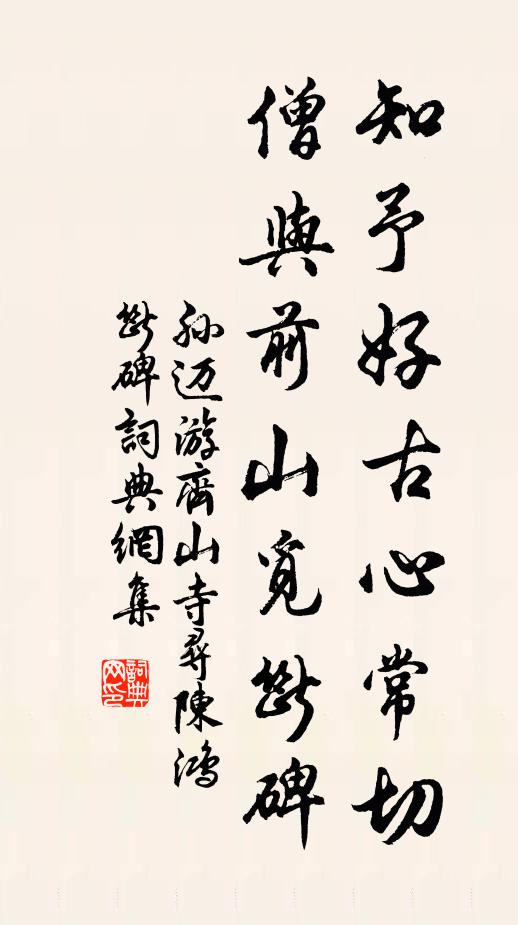 知予好古心常切
僧與前山覓斷碑
孫邁游齊山寺尋陳鴻
斷碑詞典網集
詞典
网印